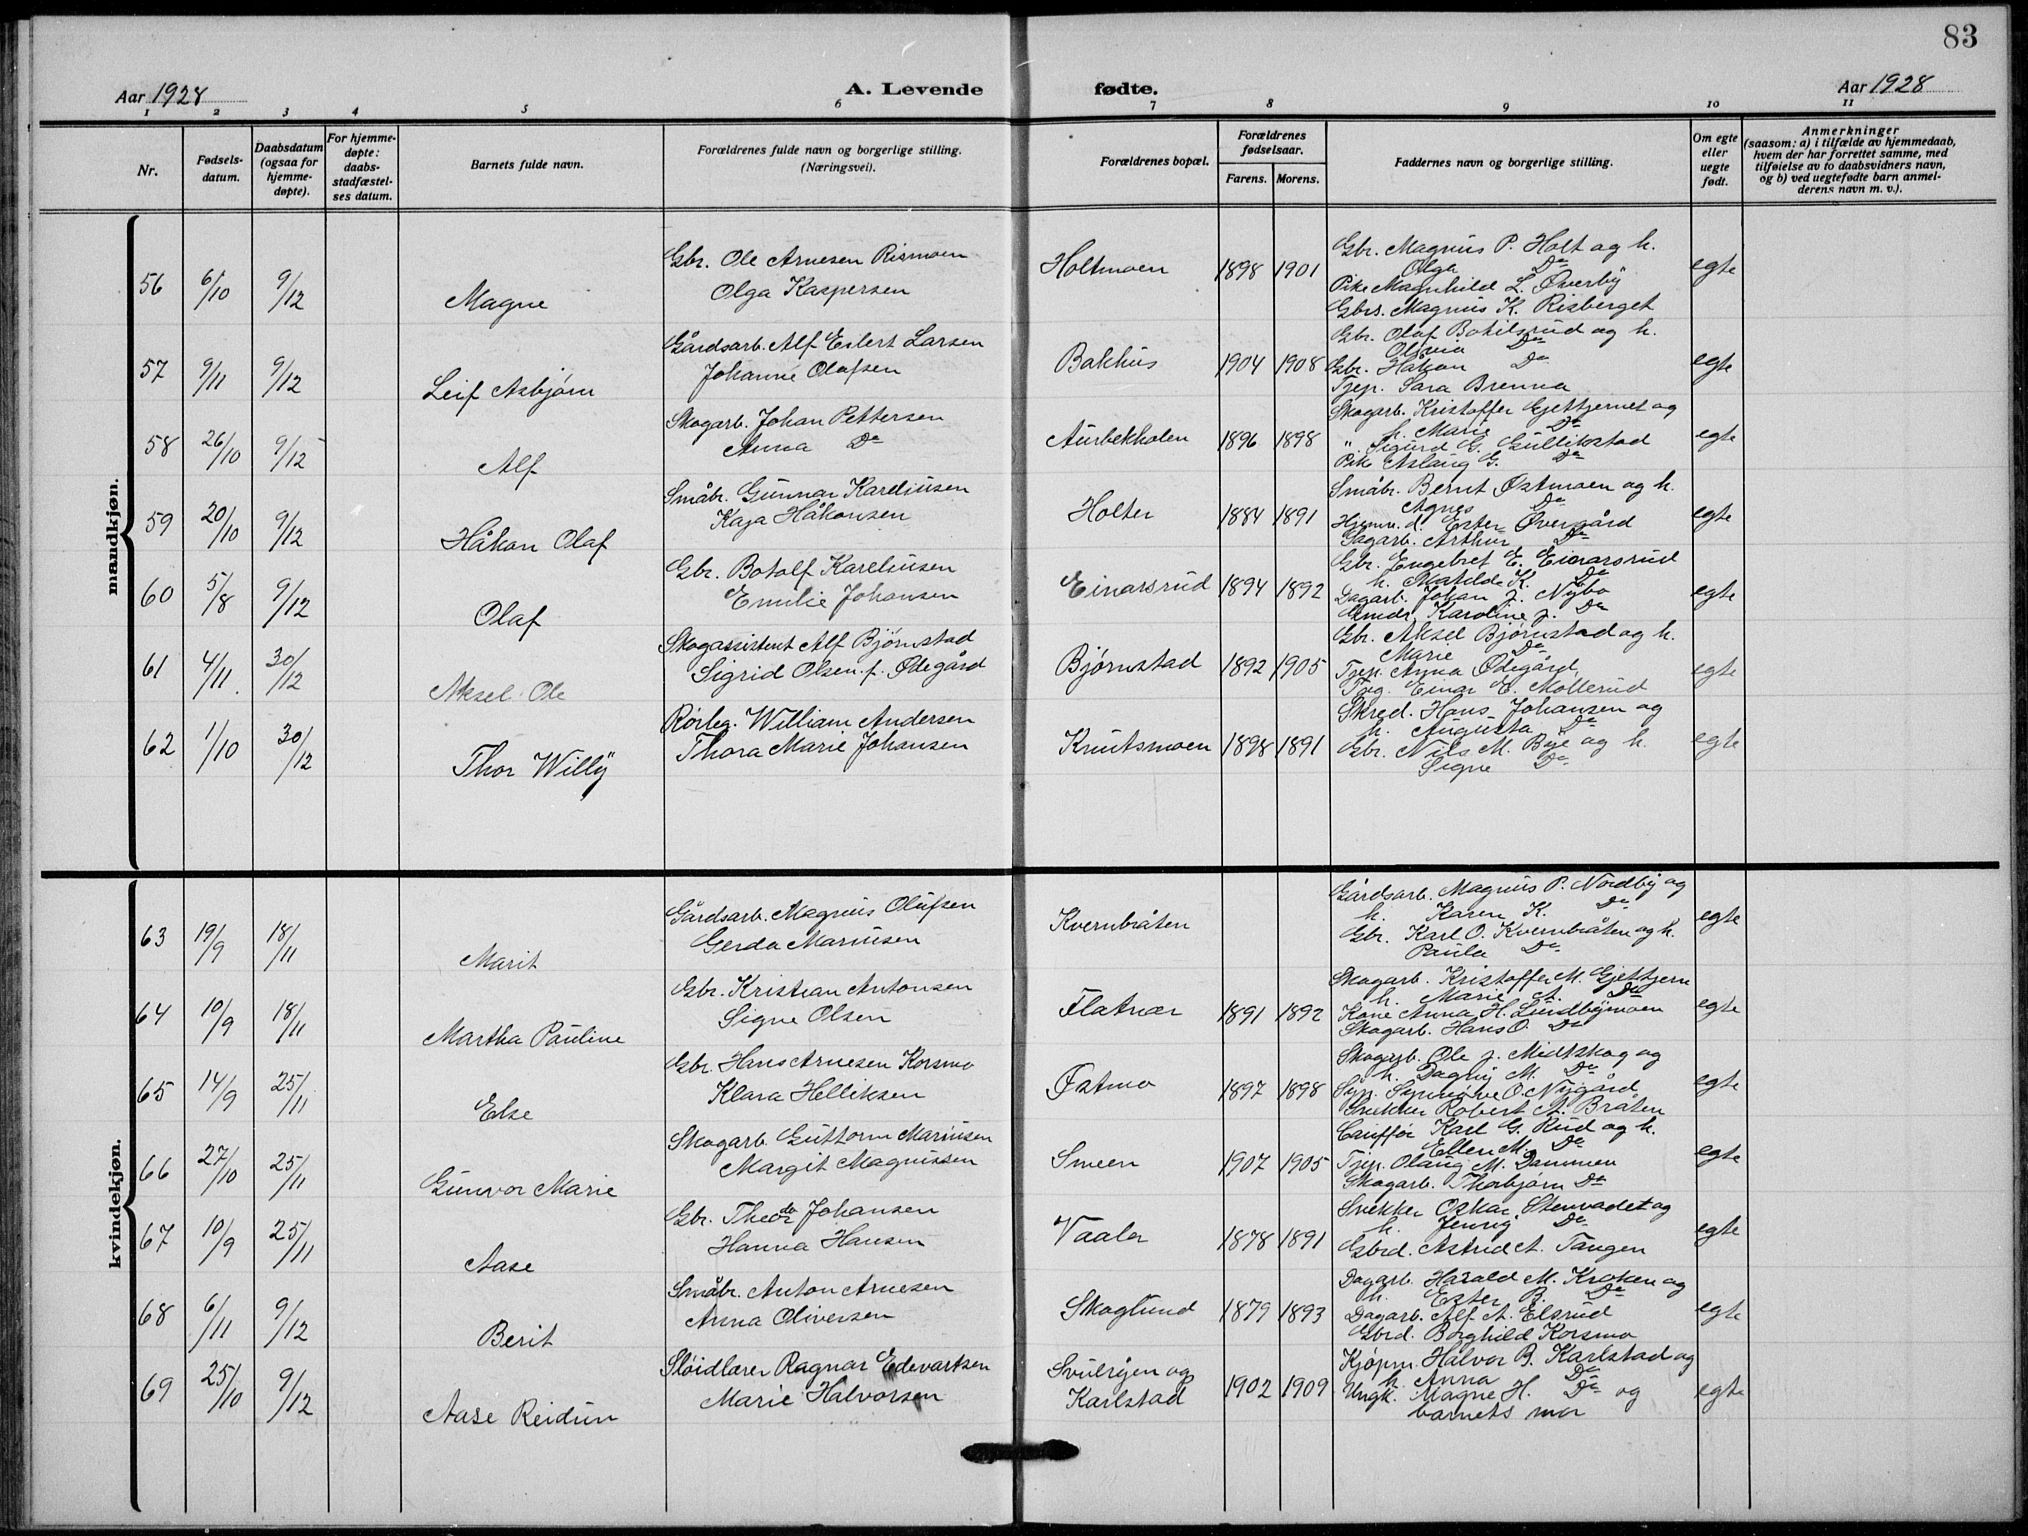 83
Aar 1928
A. Levende fødte.
Aar 1928
1 2 3 4 5 6 7 8 9 10 11
Nr.
Fødsels-
datum.
Daabsdatum
(ogsaa for
hjemme-
døpte).
For hjemme-
døpte:
daabs-
stadfæstel-
ses datum.
Barnets fulde navn.
Forældrenes fulde navn og borgerlige stilling.
(Næringsvei).
Forældrenes bopæl.
Forældrenes
fødselsaar.
Farens. Morens.
Faddernes navn og borgerlige stilling.
Om egte
eller
uegte
født.
Anmerkninger
(saasom: a) i tilfælde av hjemmedaab,
hvem der har forrettet samme, med
tilføielse av to daabsvidners navn,
og b) ved uegtefødte barn anmel-
derens navn m. v.).
mandkjøn.
56 6/10 9/12 Magne
Gbr. Ole Arnesen Rismoen
Olga Kaspersen
Holtmoen 1898 1901
Gbr. Magnus P. Holt og h.
Olga Do
Pike Magnhild L. Øverby
Gbrs. Magnus K. Risberget
egte
57 9/11 9/12 Leif Asbjørn
Gårdsarb. Alf Eilert Larsen
Johanne Olafsen
Bakhus 1904 1908
Gbr. Olaf Botilsrud og h.
Olivia Do
Gbr. Håkon Do
Tjep. Sara Brenna
egte
58 26/10 9/12 Alf
Skogarb. Johan Pettersen
Anna Do
Aurbekholen 1896 1898
Skogarb. Kristoffer Gjettjernet og
h. Marie Do
" Sigurd G. Gullikstad
Pike Aslaug G. Do
egte
59 20/10 9/12 Håkon Olaf
Småbr. Gunnar Kareliusen
Kaja Håkonsen
Holter 1884 1891
Småbr. Bernt Østmoen og h.
Agnes Do
Hjemv. d. Ester Øvergård
Dagarb. Arthur Do
egte
60 5/8 9/12 Olaf
Gbr. Botolf Kareliusen
Emilie Johansen
Einarsrud 1894 1892
Gbr. Engebret E. Einarsrud
h. Matilde K. Do
Dagarb. Johan J. Nybo
Karoline J. Do
egte
61 4/11 30/12 Aksel Ole
Skogassistent Alf Bjørnstad
Sigrid Olsen f. Ødegård
Bjørnstad 1892 1905
Gbr. Aksel Bjørnstad og h.
Marie Do
Tjep. Anna Ødegård
Einar E. Møllerud
egte
62 1/10 30/12 Thor Willy
Rørleg. William Andersen
Thora Marie Johansen
Knutsmoen 1898 1891
Skred. Hans Johansen og
h. Augusta Do
Gbr. Nils M. Bye og h.
Signe Do
egte
kvindekjøn.
63 19/9 18/11 Marit
Gårdsarb. Magnus Olufsen
Gerda Mariusen
Kvernbråten
Gårdsarb. Magnus P. Nordby og
h. Karen K. Do
Gbr. Karl O. Kvernbråten og h.
Paula Do
egte
64 10/9 18/11 Martha Pauline
Gbr. Kristian Antonsen
Signe Olsen
Flatnar 1891 1892
Skogarb. Kristoffer M. Gjettjern
h. Marie A. Do
Kone Anna H. Lundbymoen
Skogarb. Hans O. Do
egte
65 14/9 25/11 Else
Gbr. Hans Arnesen Korsmo
Klara Helliksen
Østmo 1897 1898
Skogarb. Ole J. Midtskog og
h. Dagny M. Do
Syp. Synnøve O. Nygård
Snekker Robert A. Bråten
egte
66 27/10 25/11 Gunvor Marie
Skogarb. Guttorm Mariusen
Margit Magnussen
Smeen 1907 1905
Cauffør Karl G. Rud og h.
Ellen M. Do
Tjep. Olaug M. Dammen
Skogarb. Thorbjørn Do
egte
67 10/9 25/11 Aase
Gbr. Theodor Johansen
Hanna Hansen
Vaaler 1878 1891
Snekker Oskar Stenvadet og
h. Jenny Do
Gbrd. Astrid A. Tangen
egte
68 6/11 9/12 Berit
Småbr. Anton Arnesen
Anna Oliversen
Skoglund 1879 1893
Dagarb. Harald M. Kroken og
h. Ester B. Do
Dagarb. Alf A. Elsrud
Gbrd. Borghild Korsmo
egte
69 25/10 9/12 Aase Reidun
Sløidlærer Ragnar Edevartsen
Marie Halvorsen
og
Karlstad 1902 1909
Kjøpm. Halvor B. Karlstad og
h. Anna Do
Ungk. Magne H. Do og
barnets mor
egte